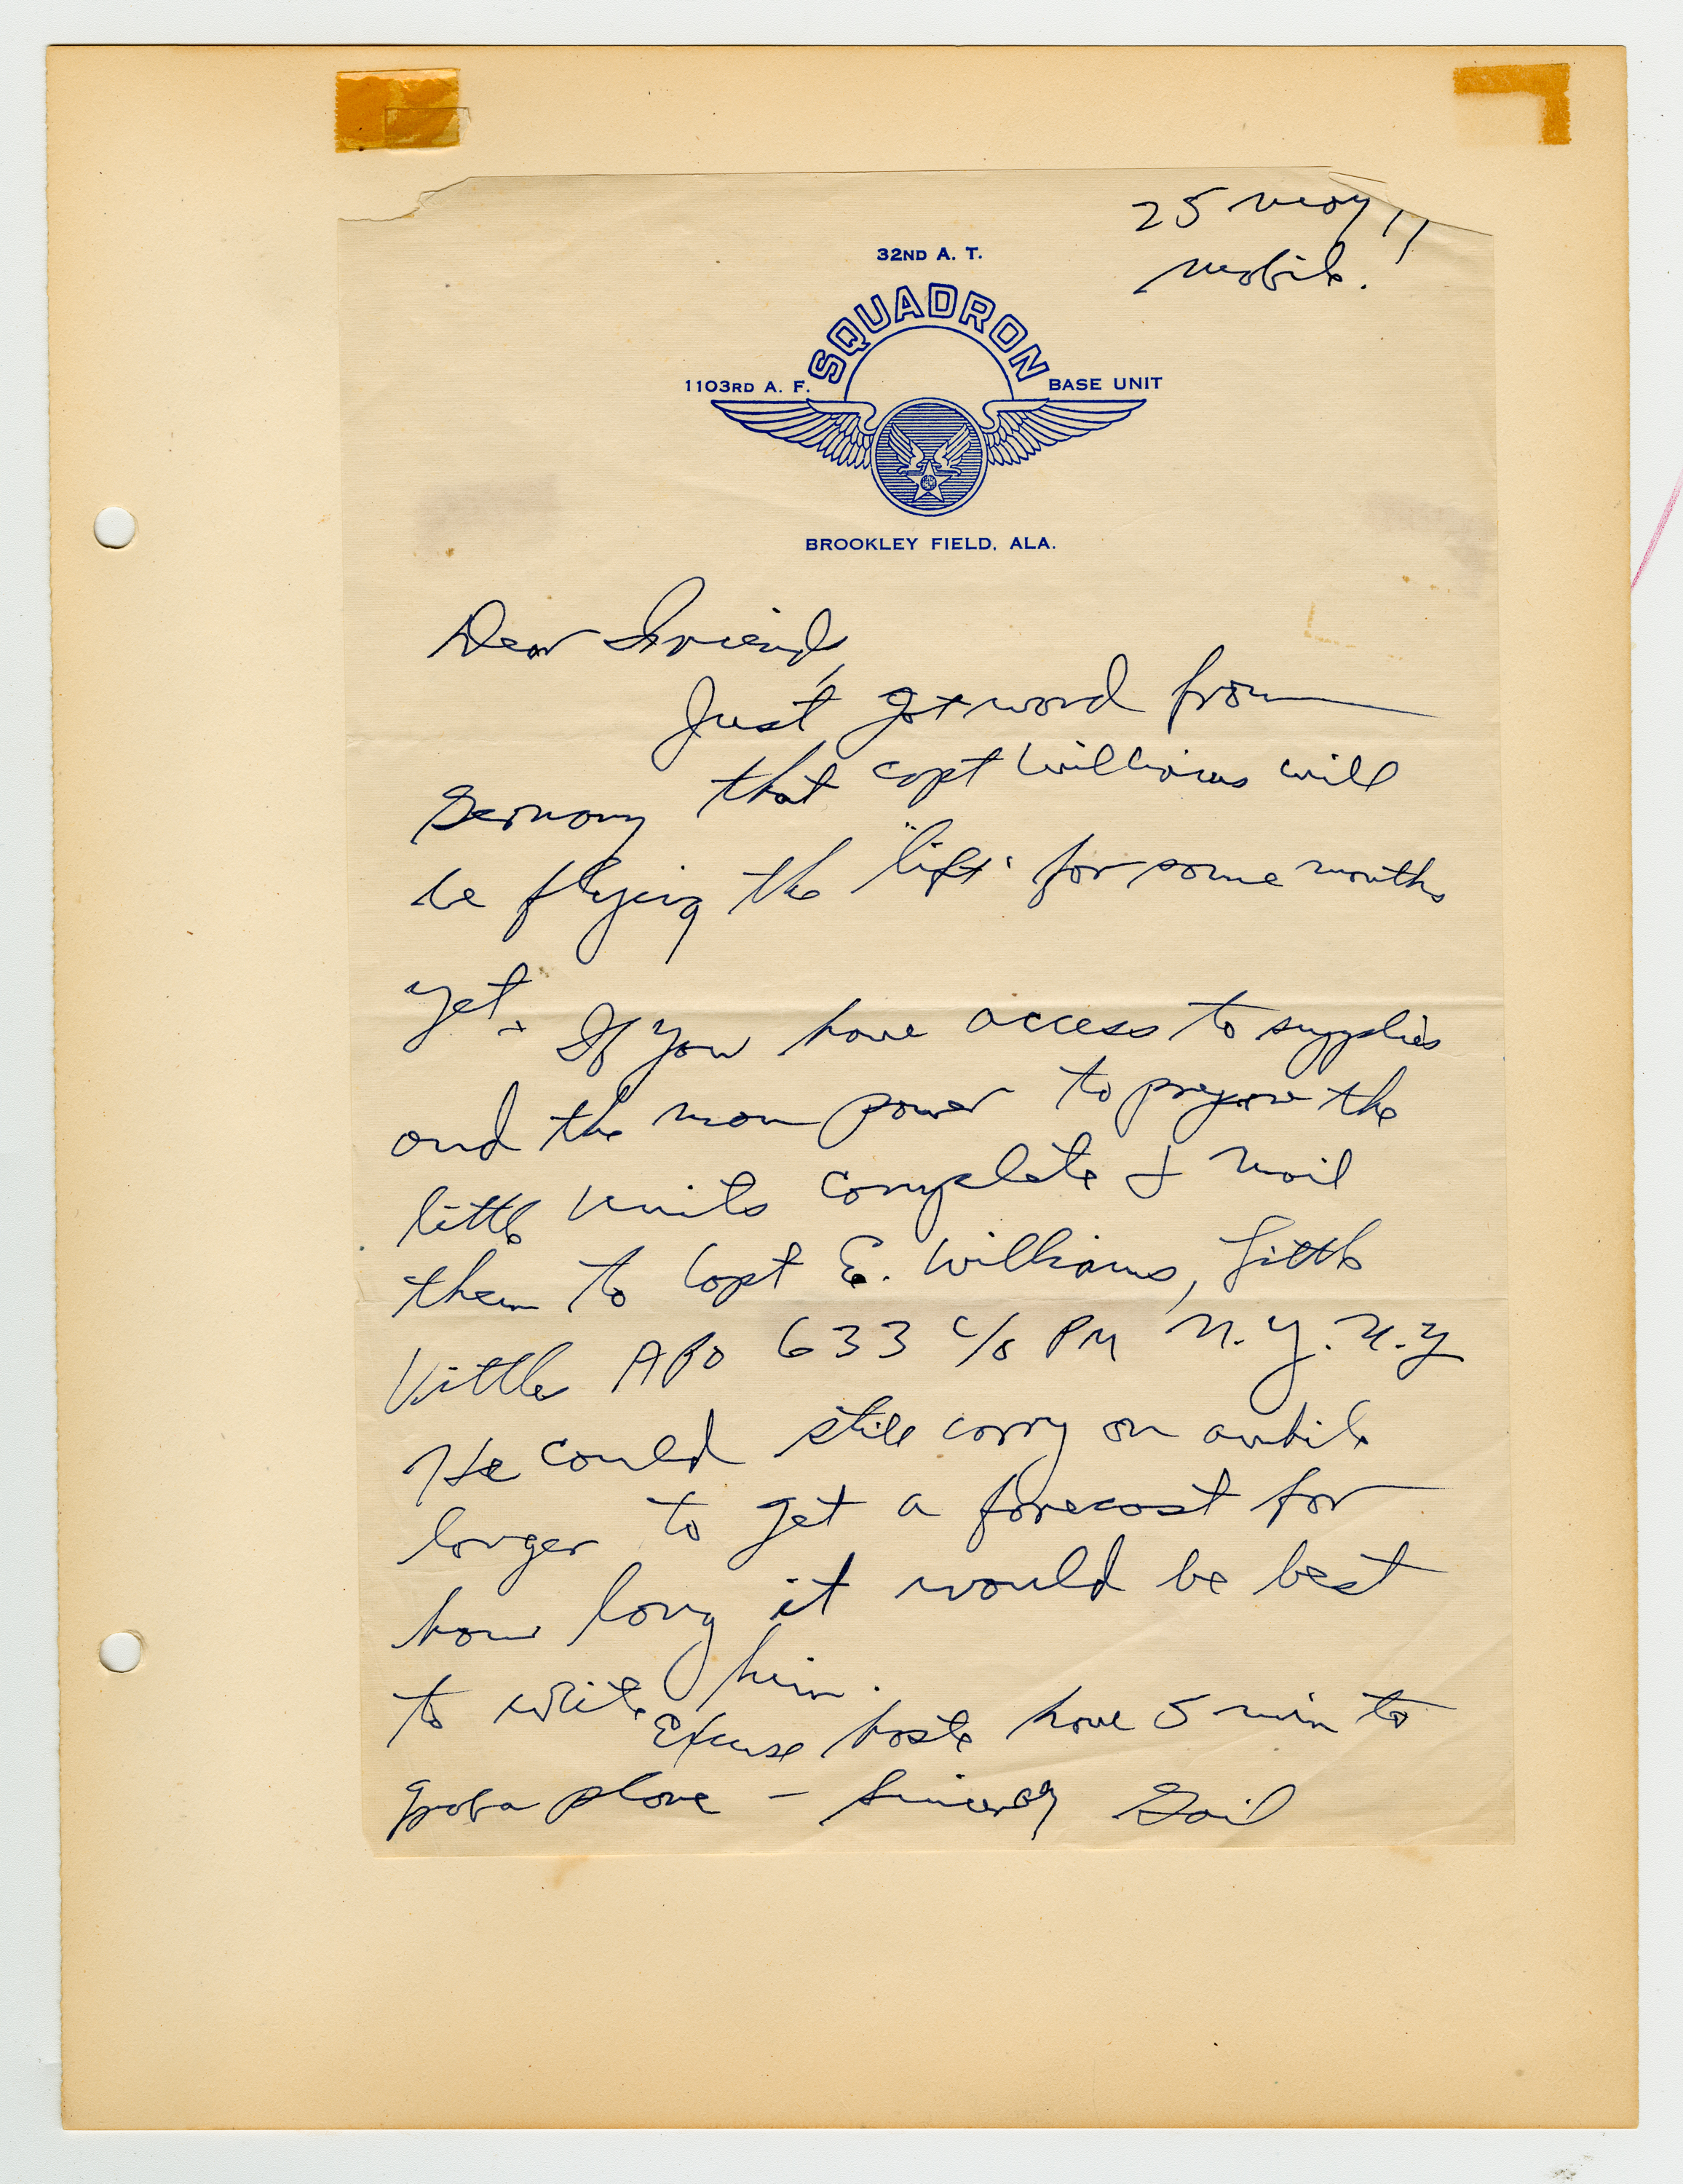 25 May !!
Mobile.
32ND A. T.
SQUADRON
1103RD A. F. BASE UNIT
BROOKLEY FIELD, ALA.
Dear Friends,
Just got word from
Germany that Capt Williams will
be flying the "lift" for some months
yet. If you have access to supplies
and the man power to prepare the
little units complete & mail
them to Capt E. Williams, Little
Vittles APO 633 c/o PM N.Y. N.Y
He could still carry on awhile
longer to get a forecast for
how long it would be best
to write him.
Excuse haste have 5 min to
grab a plane - Sincerely Gail